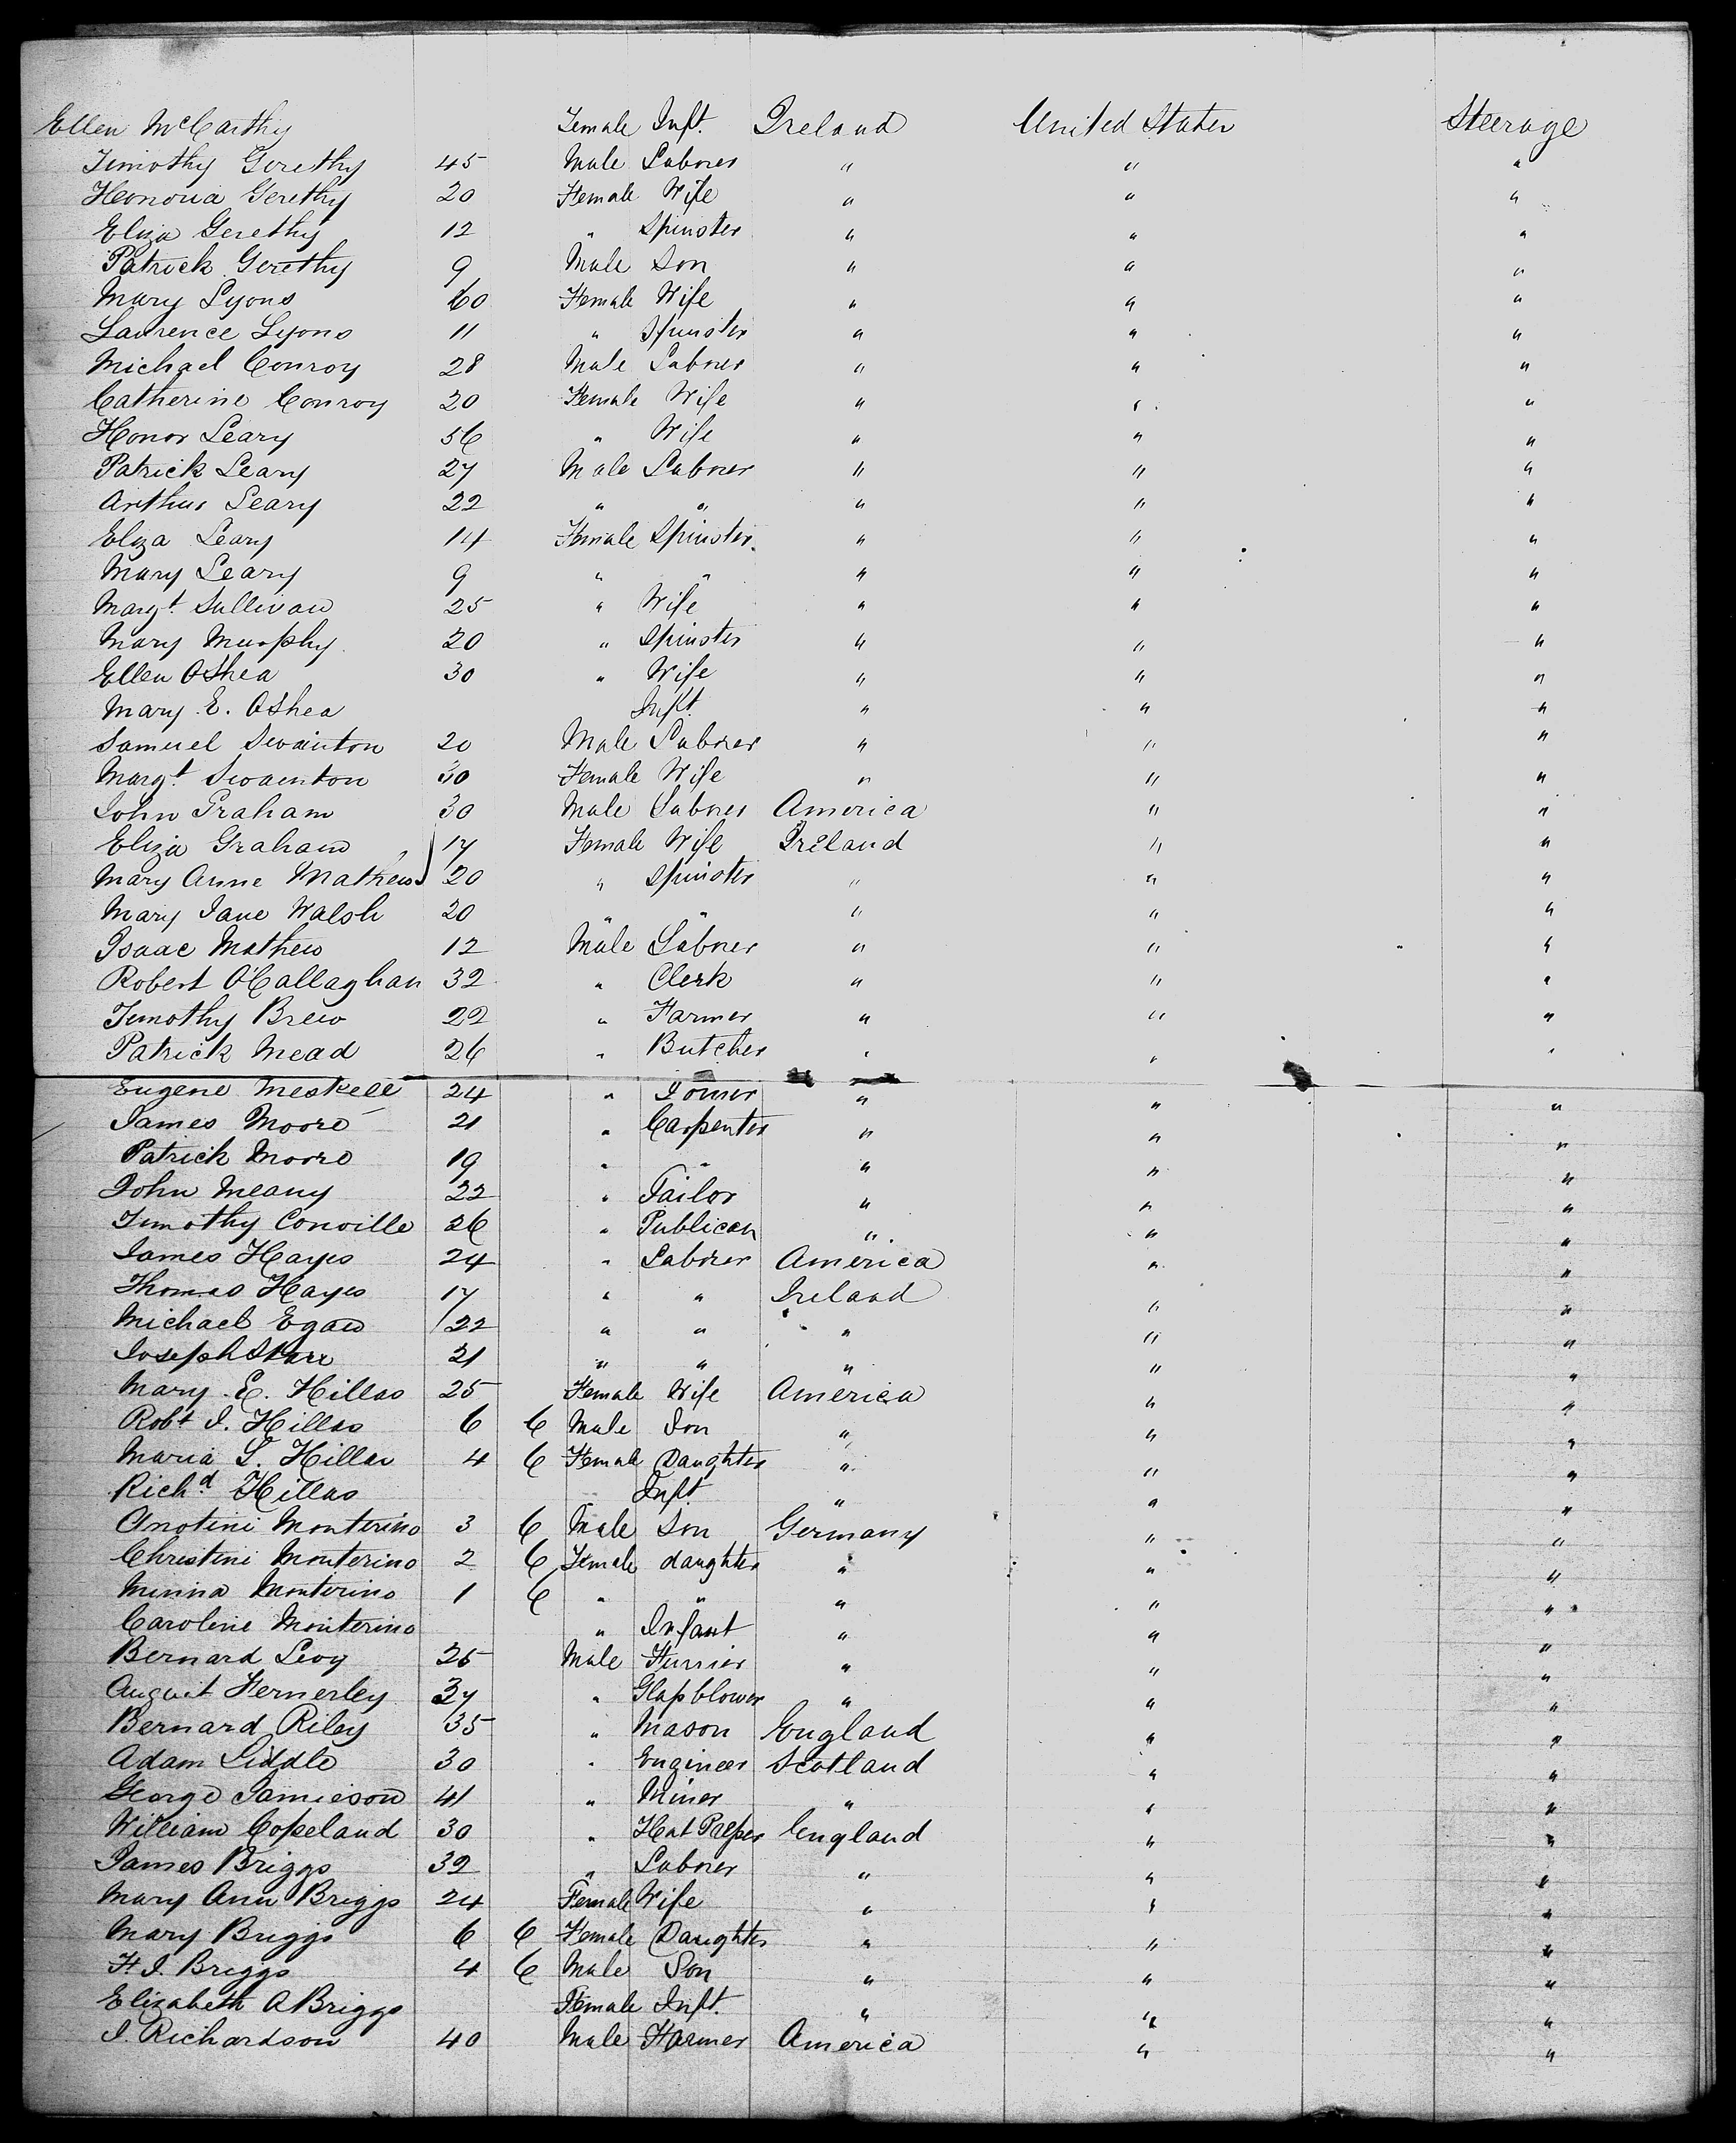 Ellen McCarthy Female Inft. Ireland United States Steerage
Timothy Gerethy 45 Male Laborer " " "
Honoria Gerethy 20 Female Wife " " "
Eliza Gerethy 12 " Spinster " " "
Patrick Gerethy 9 Male Son " " "
Mary Lyons 60 Female Wife " " "
Laurence Lyons 11 " Spinster " " "
Michael Conroy 28 Male Laborer " " "
Catherine Conroy 20 Female Wife " " "
Honor Leary 56 " Wife " " "
Patrick Leary 27 Male Laborer " " "
Arthur Leary 22 " " " " "
Eliza Leary 14 Female Spinster " " "
Mary Leary 9 " " " " "
Margt. Sullivan 25 " Wife " " "
Mary Murphy 20 " Spinster " " "
Ellen OShea 30 " Wife " " "
Mary E. OShea Inft. " " "
Samuel Swainton 20 Male Laborer " " "
Margt. Swainton 30 Female Wife " " "
John Graham 30 Male Laborer America " "
Eliza Graham 17 Female Wife Ireland " "
Mary Anne Mathews 20 " Spinster " " "
Mary Jane Walsh 20 " " " " "
Isaac Mathews 12 Male Laborer " " "
Robert O'Callaghan 32 " Clerk " " "
Timothy Brew 22 " Farmer " " "
Patrick Mead 26 " Butcher " " "
Eugene Meskell 24 " Joiner " " "
James Moore 21 " Carpenter " " "
Patrick Moore 19 " " " " "
John Meany 22 " Tailor " " "
Timothy Conville 26 " Publican " " "
James Hayes 24 " Laborer America " "
Thomas Hayes 17 " " Ireland " "
Michael Egan 22 " " " " "
Joseph 21 " " " " "
Mary E. Hillas 25 Female Wife America " "
Robt J. Hillas 6 6 Male Son " " "
Maria L. Hillas 4 6 Female Daughter " " "
Richd. Hillas Inft. " " "
Anotini Monterino 3 6 Male Son Germany " "
Christini Monterino 2 6 Female daughter " " "
Minna Monterino 1 6 " " " " "
Caroline Monterino " Infant " " "
Bernard Levy 25 Male Furrier " " "
August Fernerley 37 " Glassblower " " "
Bernard Riley 35 " Mason England " "
Adam Liddle 30 " Engineer Scotland " "
George Jamieson 41 " Miner " " "
William Copeland 30 " Hat England " "
James Briggs 32 " Laborer " " "
Mary Ann Briggs 24 Female Wife " " "
Mary Briggs 6 6 Female Daughter " " "
H. J. Briggs 4 6 Male Son " " "
Elizabeth A Briggs Female Inft. " " "
J. Richardson 40 Male Farmer America " "